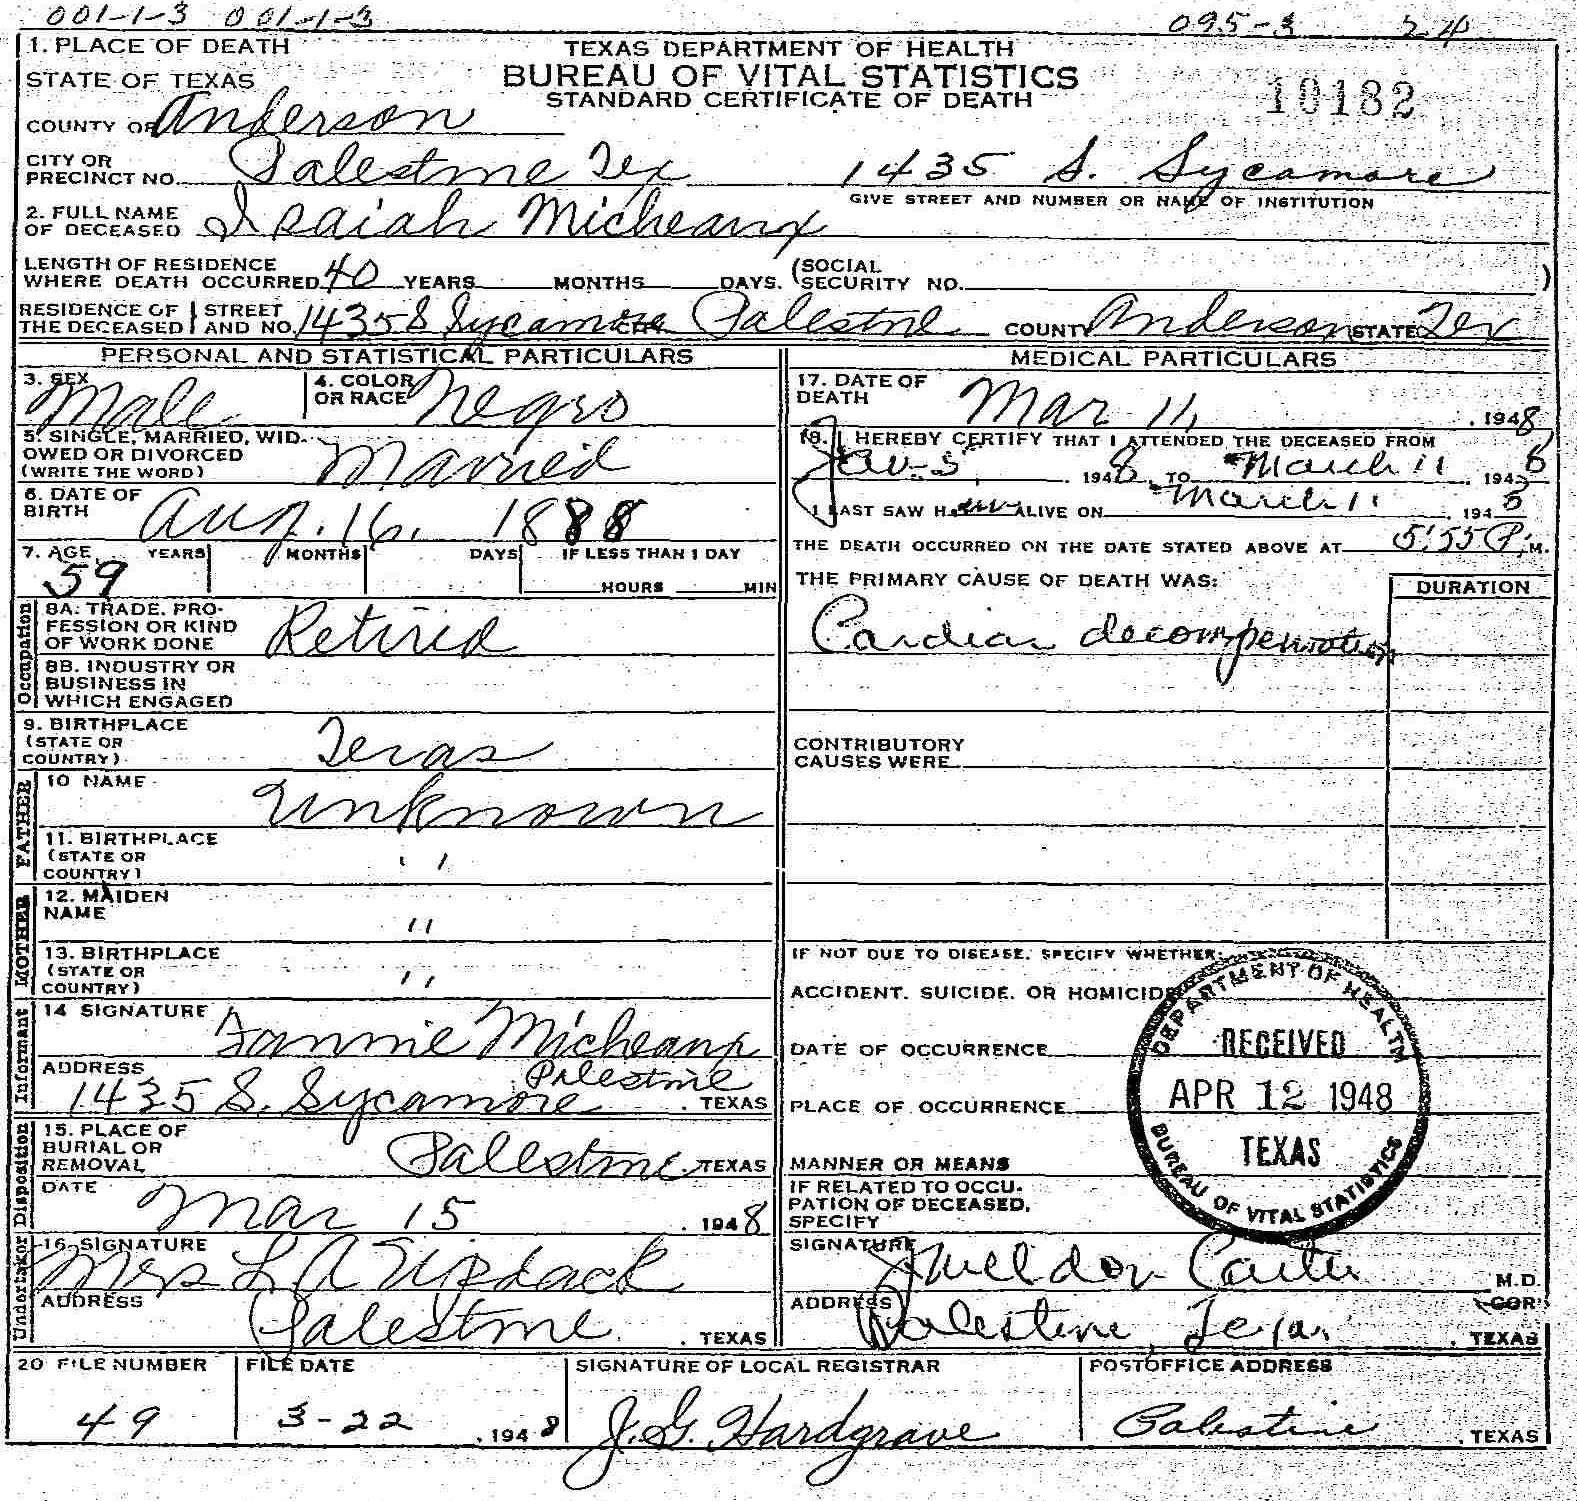 001-1-3 001-1-3 095-3 24
1. PLACE OF DEATH
STATE OF TEXAS
TEXAS DEPARTMENT OF HEALTH
BUREAU OF VITAL STATISTICS
STANDARD CERTIFICATE OF DEATH
10182
COUNTY OF Anderson
CITY OR PRECINCT NO. Palestine Tex 1435 S. Sycamore
GIVE STREET AND NUMBER OR NAME OF INSTITUTION
2. FULL NAME OF DECEASED Isaiah Micheaux
LENGTH OF RESIDENCE WHERE DEATH OCCURRED 40 YEARS MONTHS DAYS. (SOCIAL SECURITY NO. )
RESIDENCE OF THE DECEASED STREET AND NO. 1435 S Sycamore CITY Palestine COUNTY Anderson STATE Tex
PERSONAL AND STATISTICAL PARTICULARS
3. SEX Male
4. COLOR OR RACE Negro
5. SINGLE, MARRIED, WIDOWED OR DIVORCED (WRITE THE WORD) Married
6. DATE OF BIRTH Aug. 16, 1888
7. AGE YEARS MONTHS DAYS IF LESS THAN 1 DAY
59 HOURS MIN
Occupation
8A. TRADE, PROFESSION OR KIND OF WORK DONE Retired
8B. INDUSTRY OR BUSINESS IN WHICH ENGAGED
9. BIRTHPLACE (STATE OR COUNTRY) Texas
FATHER
10 NAME Unknown
11. BIRTHPLACE (STATE OR COUNTRY) "
MOTHER
12. MAIDEN NAME "
13. BIRTHPLACE (STATE OR COUNTRY) "
Informant
14 SIGNATURE Fannie Micheaux
ADDRESS 1435 S. Sycamore Palestine . TEXAS
Disposition
15. PLACE OF BURIAL OR REMOVAL Palestine, TEXAS
DATE Mar 15 . 1948
Undertaker
16. SIGNATURE Mrs L A
ADDRESS Palestine . TEXAS
MEDICAL PARTICULARS
17. DATE OF DEATH Mar 11, . 1948
18. I HEREBY CERTIFY THAT I ATTENDED THE DECEASED FROM
Jan-5, . 1948 TO March 11 1948
I LAST SAW him ALIVE ON March 11 . 1948
THE DEATH OCCURRED ON THE DATE STATED ABOVE AT 5:55 P. M.
THE PRIMARY CAUSE OF DEATH WAS: DURATION
Cardiac decompensation
CONTRIBUTORY CAUSES WERE
IF NOT DUE TO DISEASE, SPECIFY WHETHER:
ACCIDENT, SUICIDE, OR HOMICIDE
DATE OF OCCURRENCE
PLACE OF OCCURRENCE
MANNER OR MEANS
IF RELATED TO OCCUPATION OF DECEASED, SPECIFY
DEPARTMENT OF HEALTH
RECEIVED
APR 12 1948
TEXAS
BUREAU OF VITAL STATISTICS
SIGNATURE Weldon Carter M.D.
ADDRESS Palestine, Texas . TEXAS
20 FILE NUMBER 49
FILE DATE 3-22 . 1948
SIGNATURE OF LOCAL REGISTRAR J. G. Hardgrave
POSTOFFICE ADDRESS Palestine . TEXAS